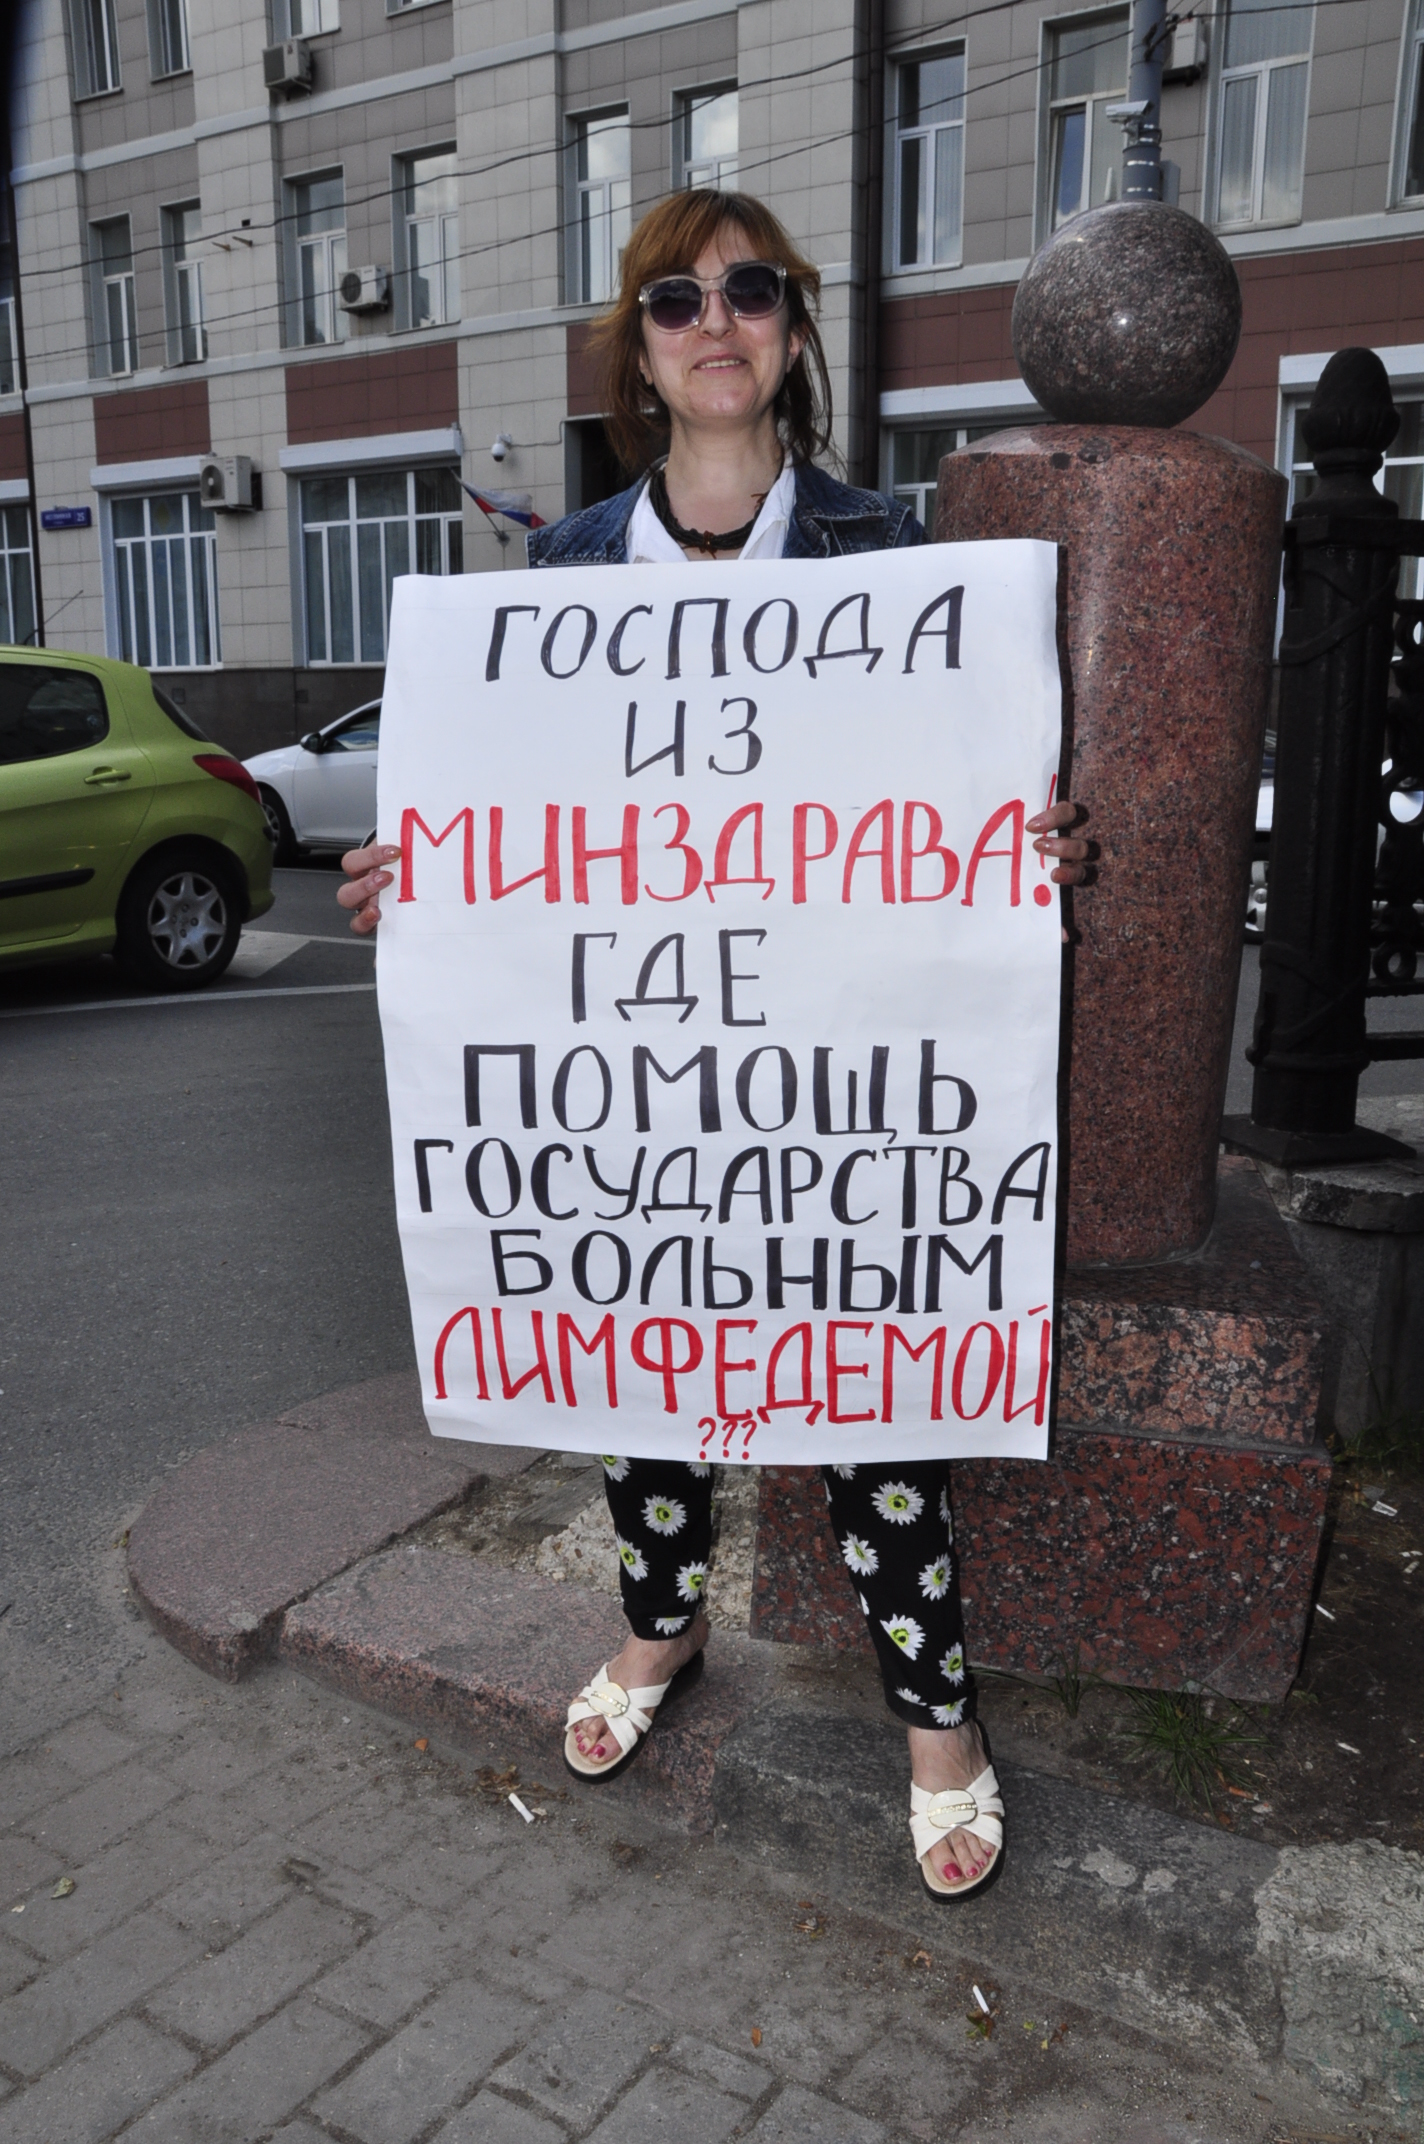 ГОСПОДА
ИЗ
МИНЗДРАВА!
ГДЕ
ПОМОЩЬ
ГОСУДАРСТВА
БОЛЬНЫМ
ЛИМФЕДЕМОЙ
???
25